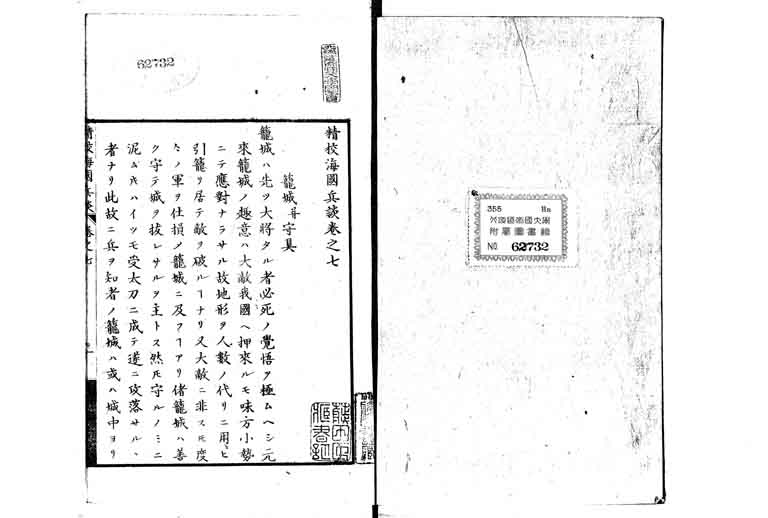 355
九州帝國大學
附屬圖書館
No 62732
62732
精校海國兵談卷之七
籠城并守具
籠城ハ先ツ大將タル者必死ノ覺悟ヲ極ムヘシ元
來籠城ノ趣意ハ大敵我國ヘ押來ルモ味方小勢
ニテ應對ナラサル故地形ヲ人數ノ代リニ用ヒ
引籠リ居テ敵ヲ破ルヿナリ又大敵ニ非ス𪜈度
々ノ軍ヲ仕損メ籠城ニ及フヿアリ偖籠城ハ善
ク守テ城ヲ拔レサルヲ主トス然𪜈守ルノミニ
泥ム𪜈ハイツモ受太刀ニ成テ遂ニ攻落サル、
者ナリ此故ニ兵ヲ知者ノ籠城ハ或ハ城中ヨリ
精校海國兵談 卷之七